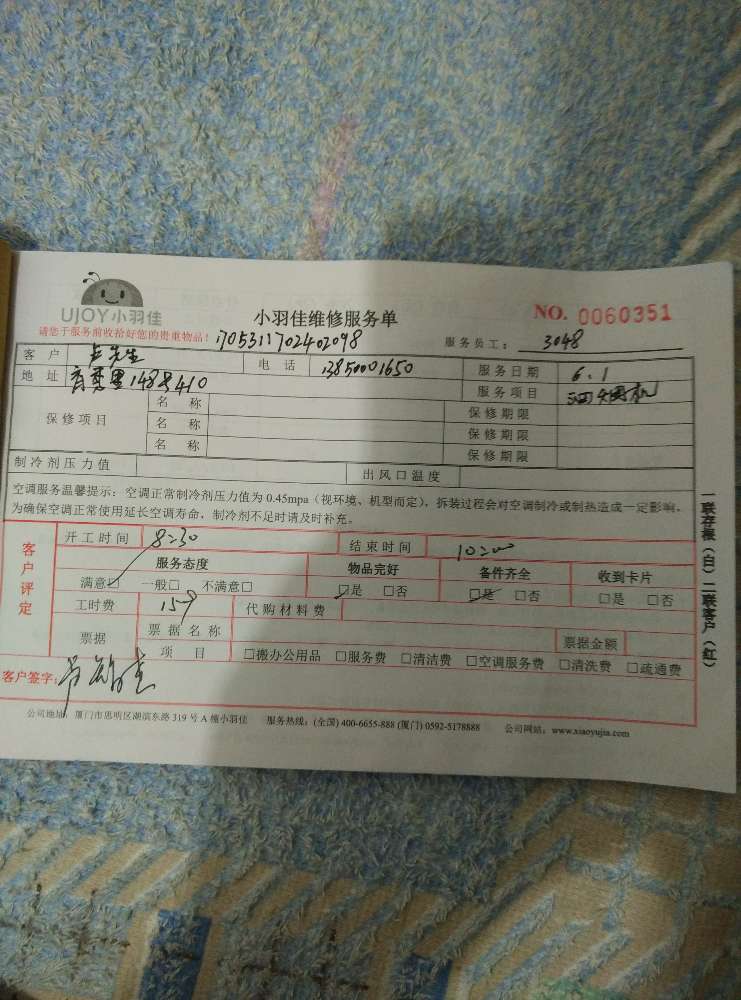 UJOY小羽佳
小羽佳维修服务单
NO. 0060351
请您于服务前收拾好您的贵重物品!
1705311702402098
服务员工: 3048
客 户 卢先生 电 话 13850001650 服务日期 6.1
地 址 148 410 服务项目 烟机
保修项目 名 称 保修期限
名 称 保修期限
名 称 保修期限
制冷剂压力值 出风口温度
空调服务温馨提示: 空调正常制冷剂压力值为 0.45mpa(视环境、机型而定), 拆装过程会对空调制冷或制热造成一定影响,
为确保空调正常使用延长空调寿命, 制冷剂不足时请及时补充。
客户评定
开工时间 8:30 结束时间 10:00
服务态度 物品完好 备件齐全 收到卡片
满意□ 一般□ 不满意□ □是 □否 □是 □否 □是 □否
工时费 159 代购材料费
票据 票据名称 票据金额
项 目 □搬办公用品 □服务费 □清洁费 □空调服务费 □清洗费 □疏通费
客户签字:
公司地址: 厦门市思明区湖滨东路 319 号 A 幢小羽佳 服务热线: (全国) 400-6655-888 (厦门) 0592-5178888 公司网站: www.xiaoyujia.com
一联存根(白) 二联客户(红)